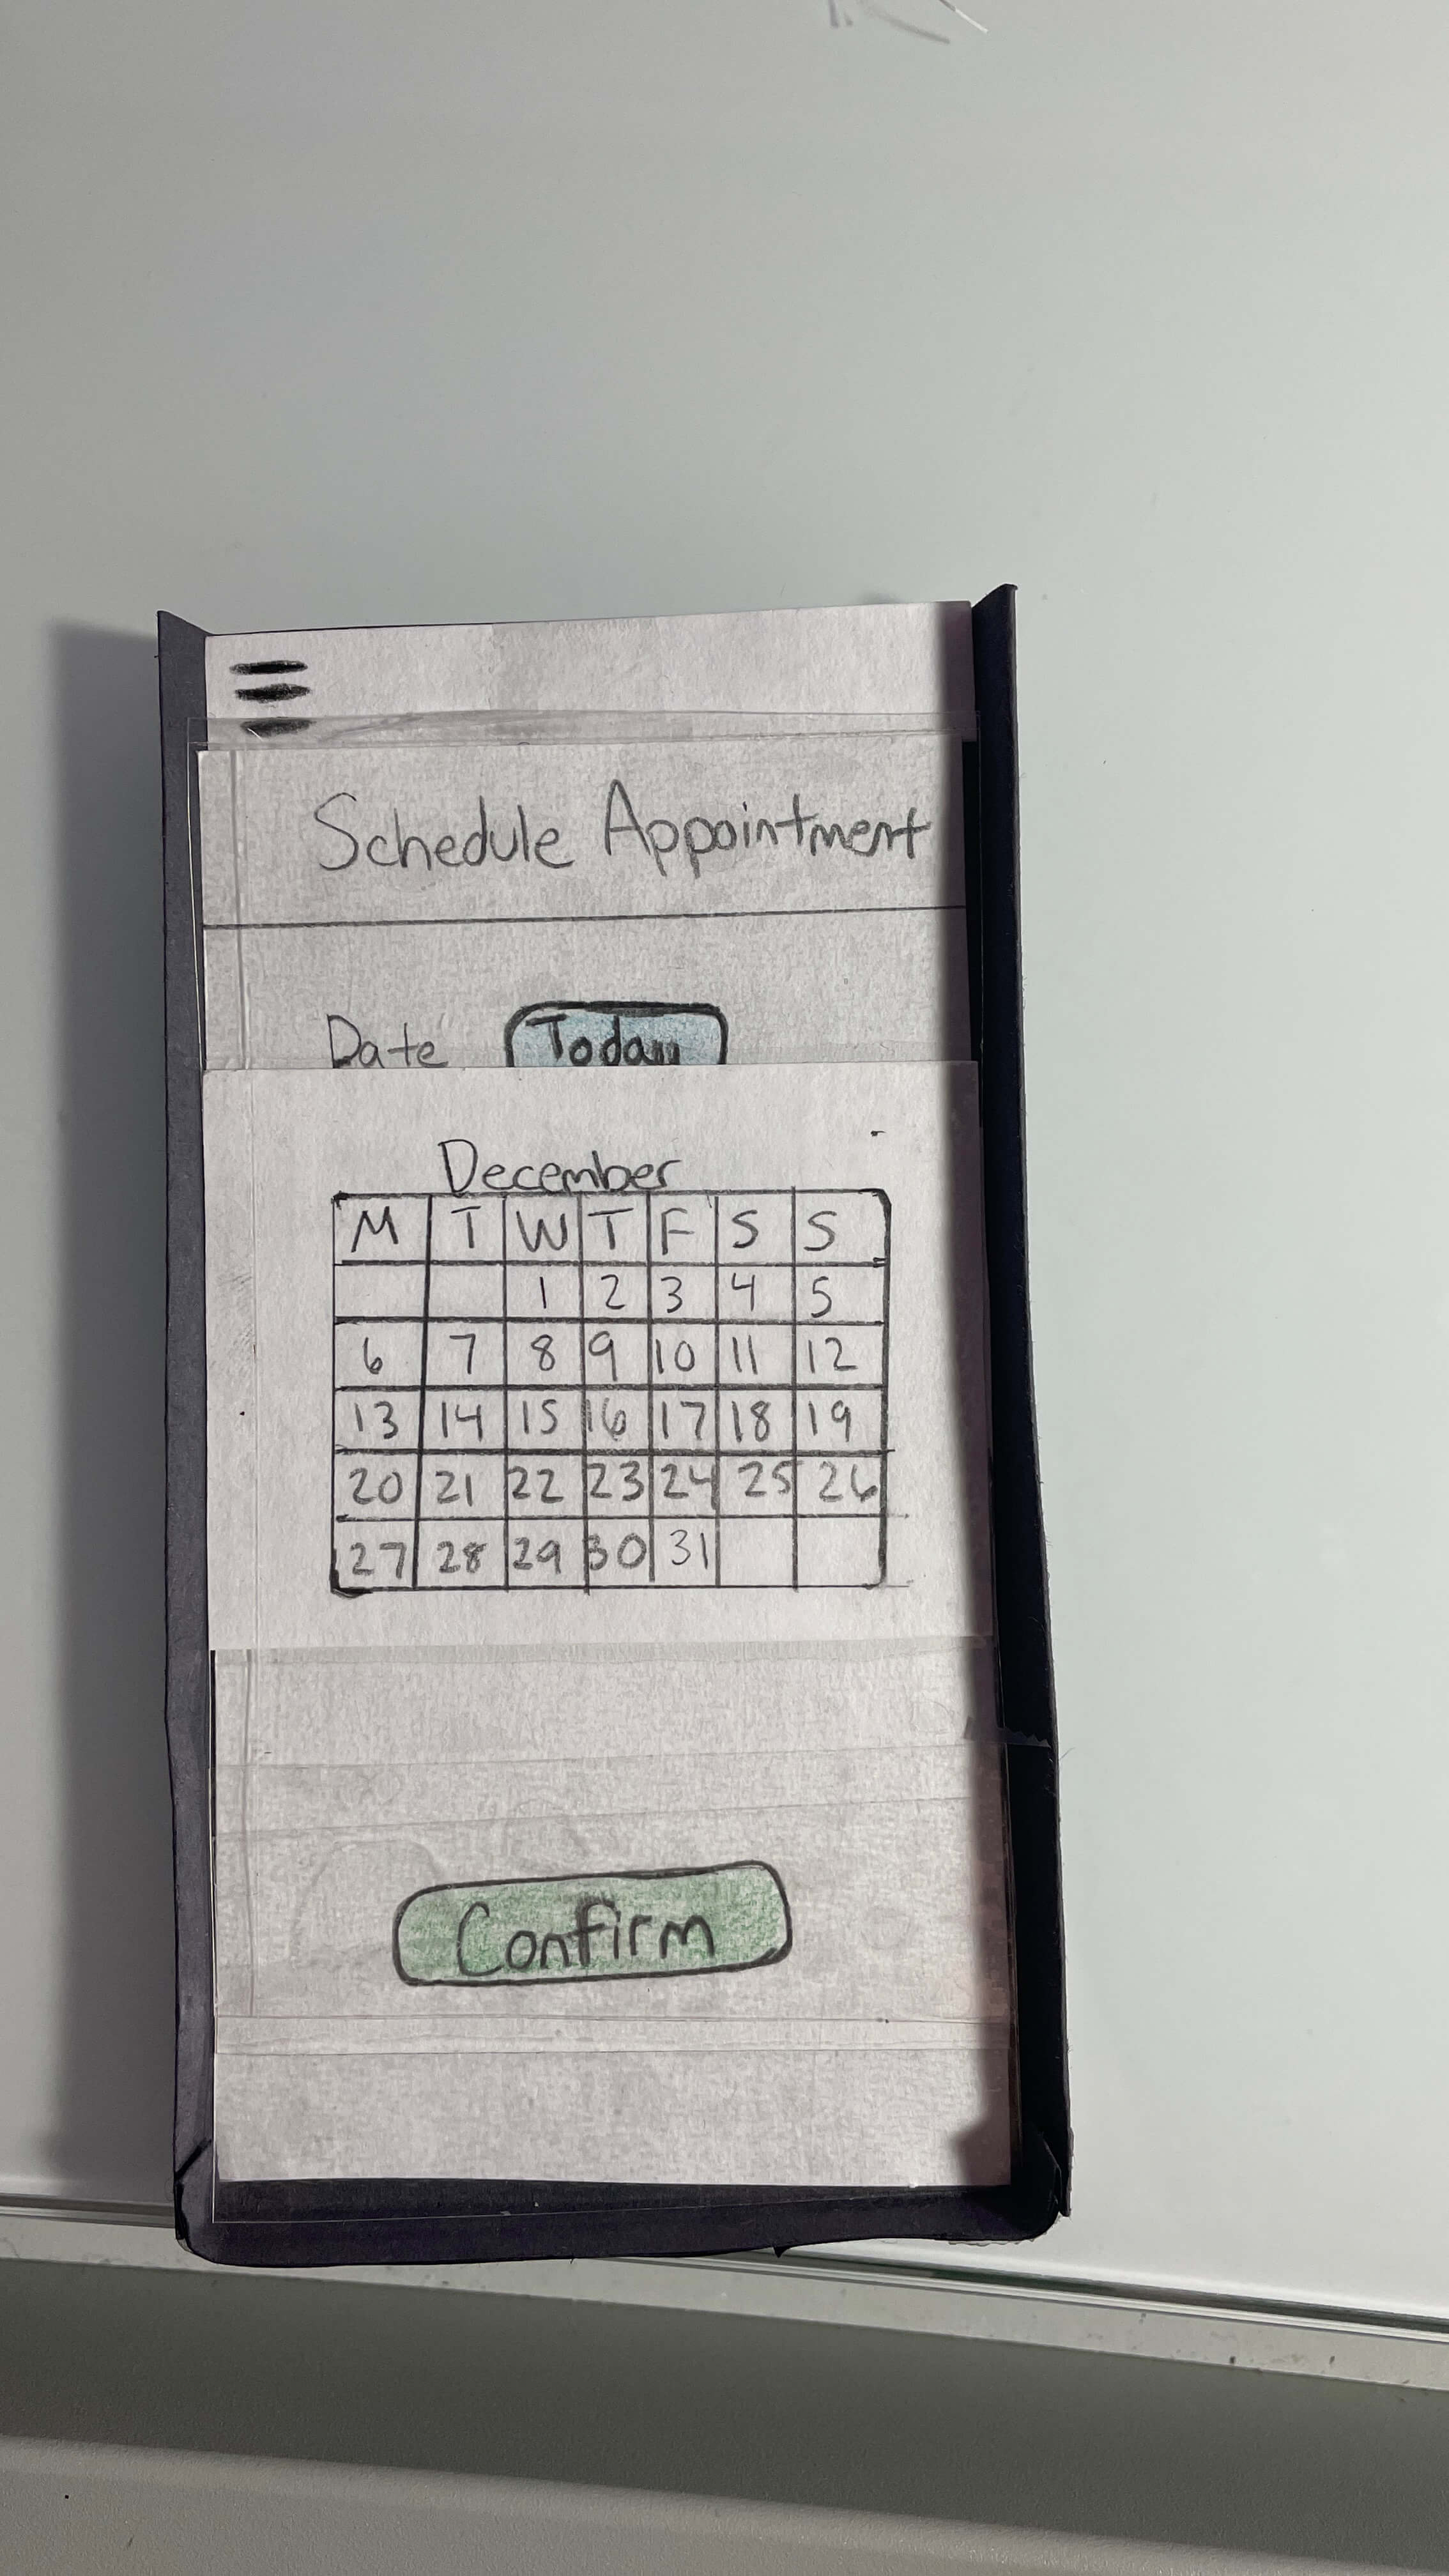 Schedule Appointment
Date Today
December
M T W T F S S
1 2 3 4 5
6 7 8 9 10 11 12
13 14 15 16 17 18 19
20 21 22 23 24 25 26
27 28 29 30 31
Confirm